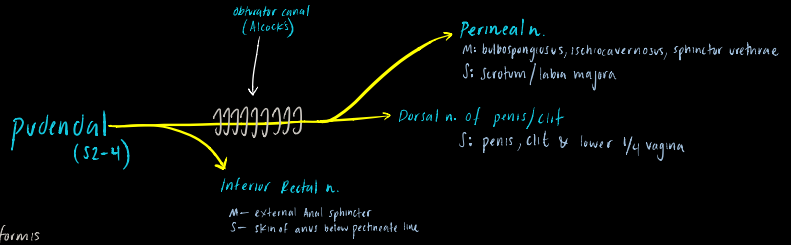 obturator canal
(Alcock's)
Perineal n.
M: bulbospongiosus, ischiocavernosus, sphinctor urethrae
S: scrotum/labia majora
Pudendal
(S2-4)
Dorsal n. of penis/clit
S: penis, clit & lower 1/4 vagina
Inferior Rectal n.
M- external Anal sphincter
S- skin of anus below pectinate line
formis